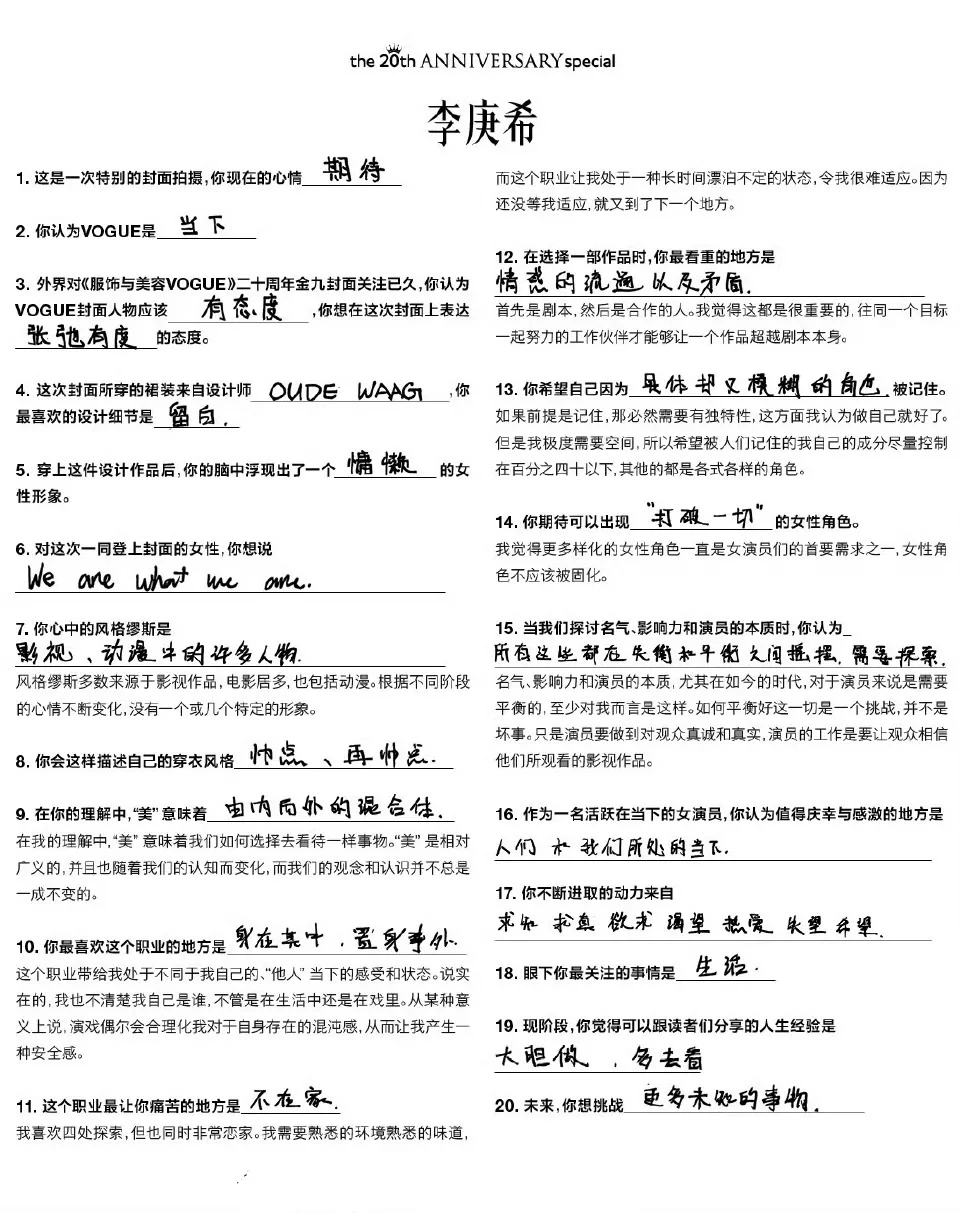 the 20th ANNIVERSARY special
李庚希
1. 这是一次特别的封面拍摄,你现在的心情 期待
2. 你认为VOGUE是 当下
3. 外界对《服饰与美容VOGUE》二十周年金九封面关注已久,你认为
VOGUE封面人物应该 有态度 ,你想在这次封面上表达
张弛有度 的态度。
4. 这次封面所穿的裙装来自设计师 OUDE WAAG ,你
最喜欢的设计细节是 留白.
5. 穿上这件设计作品后,你的脑中浮现出了一个 慵懒 的女
性形象。
6. 对这次一同登上封面的女性,你想说
We are what we are.
7. 你心中的风格缪斯是
影视、动漫中的许多人物.
风格缪斯多数来源于影视作品,电影居多,也包括动漫。根据不同阶段
的心情不断变化,没有一个或几个特定的形象。
8. 你会这样描述自己的穿衣风格 帅点、再帅点.
9. 在你的理解中,“美”意味着 由内而外的混合体.
在我的理解中,“美”意味着我们如何选择去看待一样事物。“美”是相对
广义的,并且也随着我们的认知而变化,而我们的观念和认识并不总是
一成不变的。
10. 你最喜欢这个职业的地方是 身在其中.置身事外.
这个职业带给我处于不同于我自己的、“他人”当下的感受和状态。说实
在的,我也不清楚我自己是谁,不管是在生活中还是在戏里。从某种意
义上说,演戏偶尔会合理化我对于自身存在的混沌感,从而让我产生一
种安全感。
11. 这个职业最让你痛苦的地方是 不在家.
我喜欢四处探索,但也同时非常恋家。我需要熟悉的环境熟悉的味道,
而这个职业让我处于一种长时间漂泊不定的状态,令我很难适应。因为
还没等我适应,就又到了下一个地方。
12. 在选择一部作品时,你最看重的地方是
情感的流通以及矛盾.
首先是剧本,然后是合作的人。我觉得这都是很重要的,往同一个目标
一起努力的工作伙伴才能够让一个作品超越剧本本身。
13. 你希望自己因为 具体却又模糊的角色. 被记住。
如果前提是记住,那必然需要有独特性,这方面我认为做自己就好了。
但是我极度需要空间,所以希望被人们记住的我自己的成分尽量控制
在百分之四十以下,其他的都是各式各样的角色。
14. 你期待可以出现 “打破一切” 的女性角色。
我觉得更多样化的女性角色一直是女演员们的首要需求之一,女性角
色不应该被固化。
15. 当我们探讨名气、影响力和演员的本质时,你认为
所有这些都在失衡和平衡之间摇摆.需要探索.
名气、影响力和演员的本质,尤其在如今的时代,对于演员来说是需要
平衡的,至少对我而言是这样。如何平衡好这一切是一个挑战,并不是
坏事。只是演员要做到对观众真诚和真实,演员的工作是要让观众相信
他们所观看的影视作品。
16. 作为一名活跃在当下的女演员,你认为值得庆幸与感激的地方是
人们和我们所处的当下.
17. 你不断进取的动力来自
求知 求真 欲求 渴望 热爱 失望 希望.
18. 眼下你最关注的事情是 生活.
19. 现阶段,你觉得可以跟读者们分享的人生经验是
大胆做.多去看
20. 未来,你想挑战 更多未知的事物.